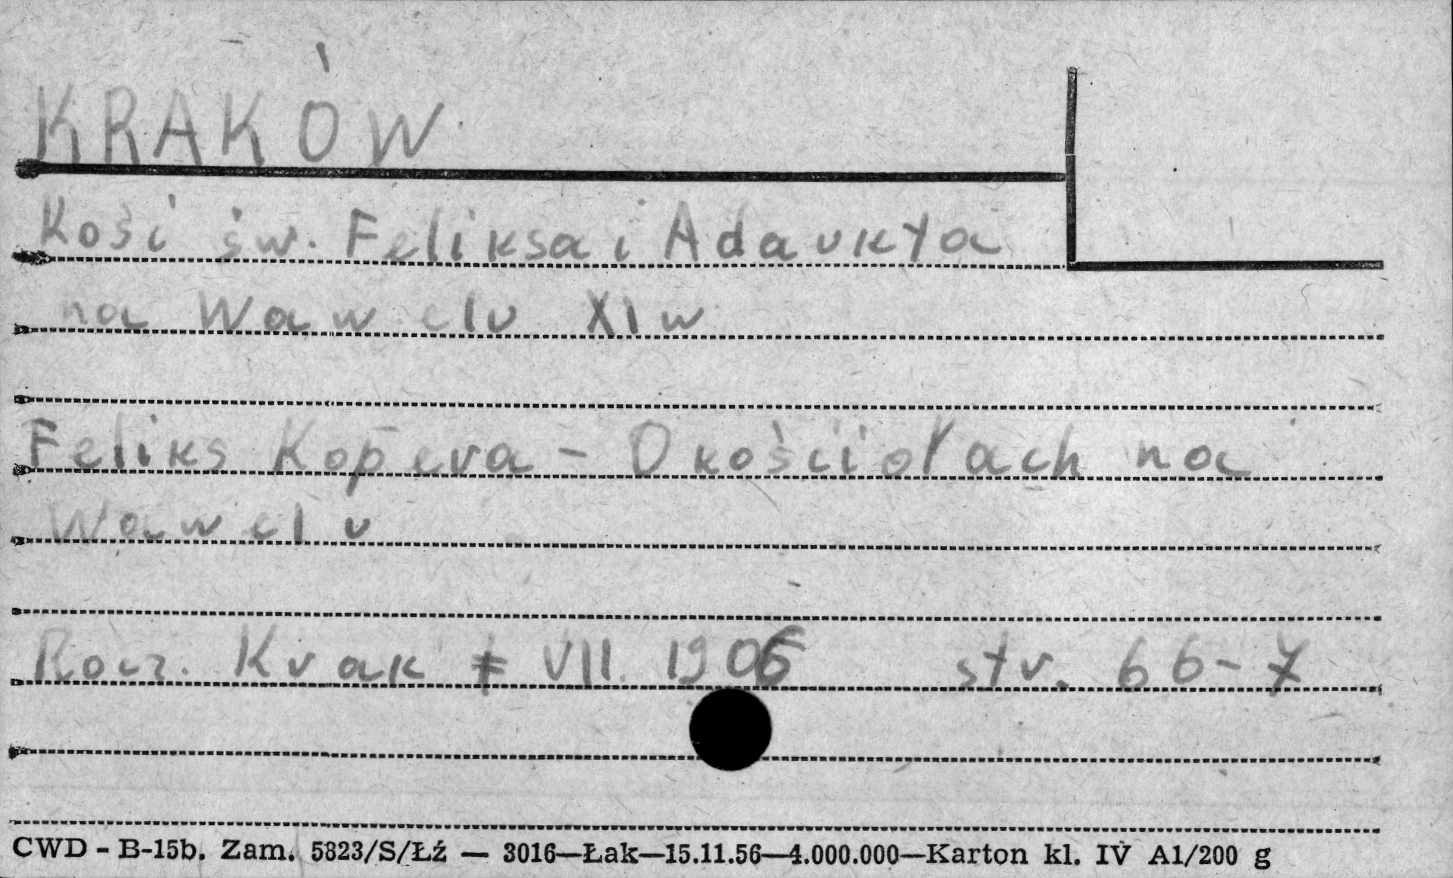 KRAKÓW
Kośc św. Feliksa i Adaukta
na Wawelu XI w
Feliks Kopera - O kościołach na
Wawelu
Rocz. Krak ŧ VIII. 1906 str. 66-7
CWD - B-15b. Zam. 5823/S/Łź — 3016—Łak—15.11.56—4.000.000—Karton kl. IV A1/200 g